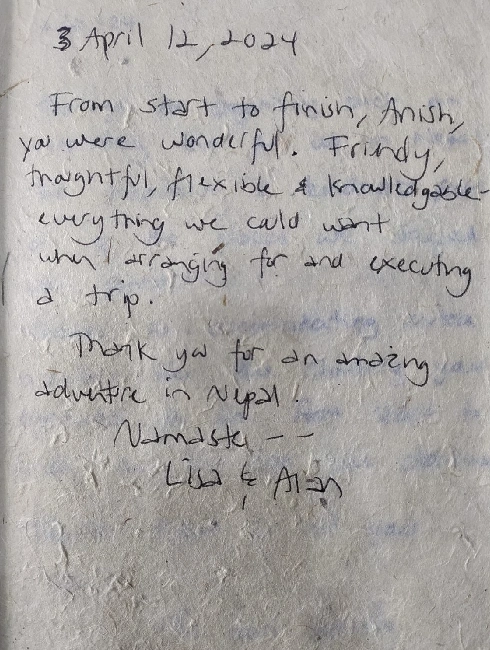 3 April 12, 2024
From start to finish, Anish,
you were wonderful. Friendly,
thoughtful, flexible & knowledgable-
everything we could want
when arranging for and executing
a trip.
Thank you for an amazing
adventure in Nepal.
Namaste --
Lisa & Alan